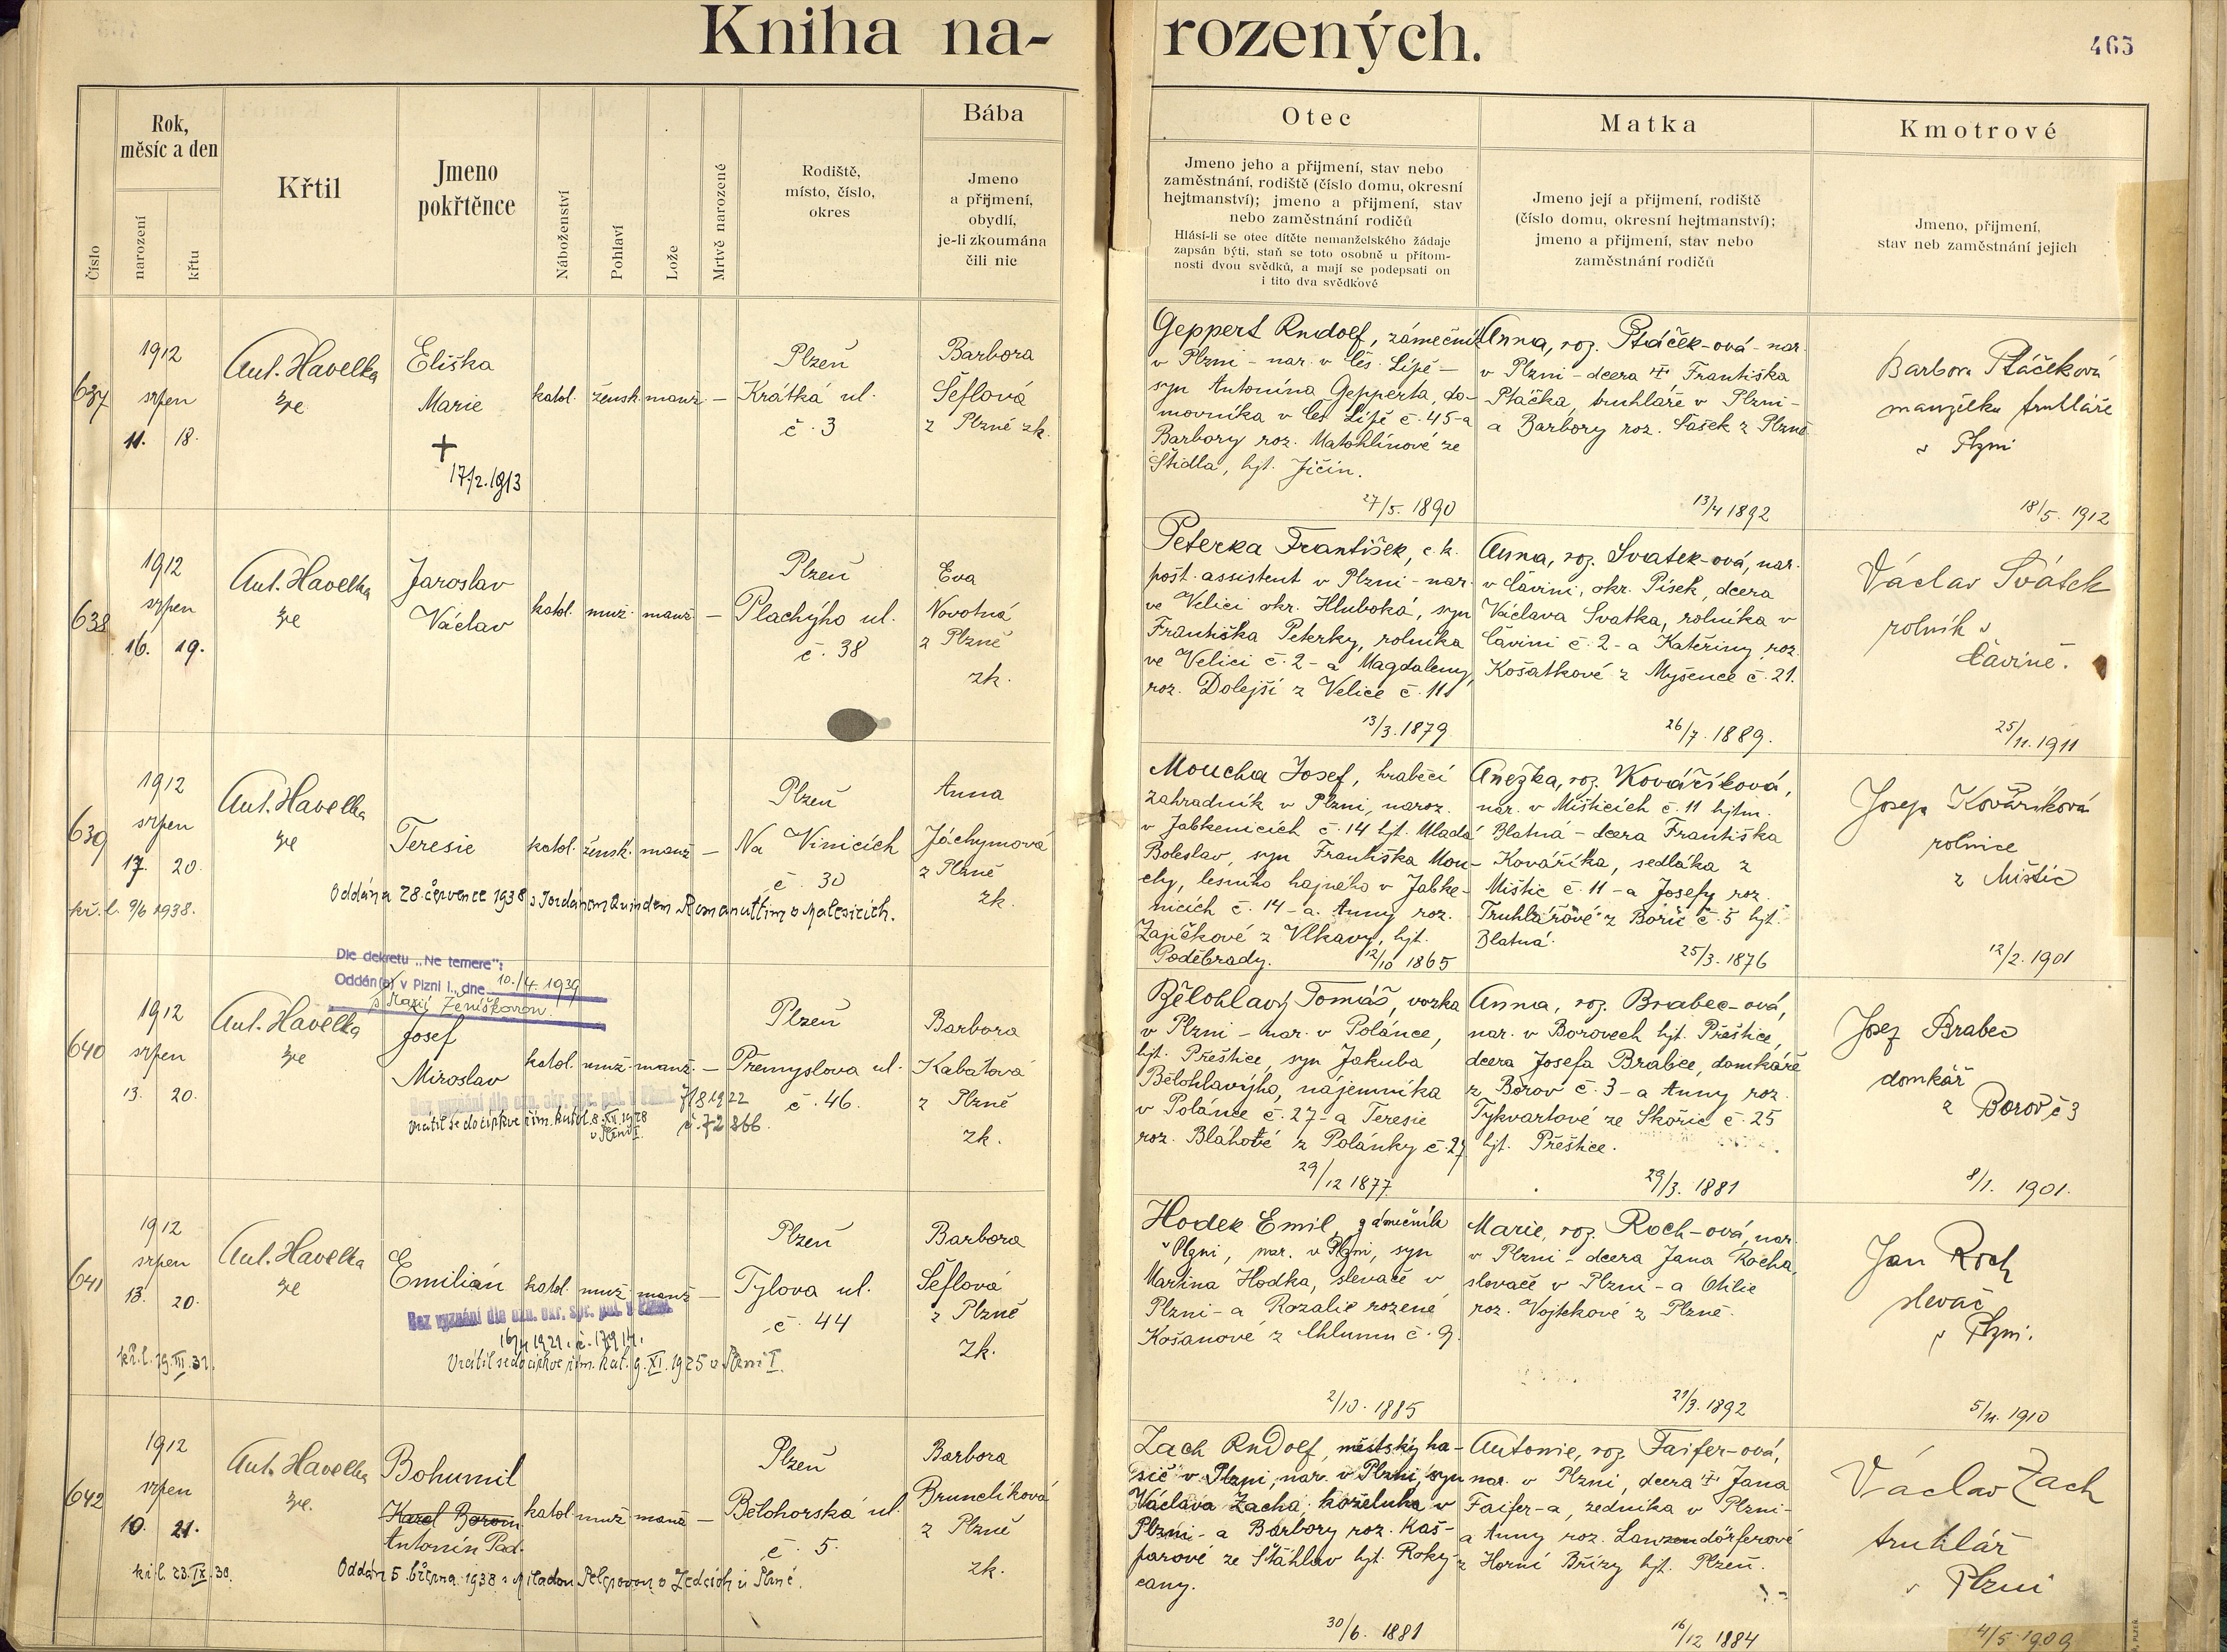 Kniha na-
rozených.
465
Číslo
Rok,
měsíc a den
narození
křtu
Křtil
Jmeno
pokřtěnce
Náboženství
Pohlaví
Lože
Mrtvě narozené
Rodiště,
místo, číslo,
okres
Bába
Jmeno
a přijmení,
obydlí,
je-li zkoumána
čili nic
Otec
Jmeno jeho a přijmení, stav nebo
zaměstnání, rodiště (číslo domu, okresní
hejtmanství); jmeno a přijmení, stav
nebo zaměstnání rodičů
Hlásí-li se otec dítěte nemanželského žádaje
zapsán býti, staň se toto osobně u přítom-
nosti dvou svědků, a mají se podepsati on
i tito dva svědkové
Matka
Jmeno její a přijmení, rodiště
(číslo domu, okresní hejtmanství);
jmeno a přijmení, stav nebo
zaměstnání rodičů
Kmotrové
Jmeno, přijmení,
stav neb zaměstnání jejich
637
1912
srpen
11. 18.
Ant. Havelka
Eliška
Marie
+
17/2.1913
katol.
žensk.
manž.
—
Plzeň
Krátká ul.
č. 3
Barbora
Šeflová
z Plzně zk.
Geppert Rudolf, zámečník
v Plzni - nar. v Čes. Lípě -
syn Antonína Gepperta, do-
movníka v Čes. Lípě č. 45 - a
Barbory roz. Matohlínové ze
Štidla, hjt. Jičín.
27/5. 1890
Anna, roz. Ptáček-ová - nar.
v Plzni - dcera † Františka
Ptáčka, truhláře v Plzni -
a Barbory roz. Šašek z Plzně
13/4 1892
Barbora Ptáčeková
manželka truhláře
v Plzni
18/5. 1912
638
1912
srpen
16. 19.
Ant. Havelka
Jaroslav
Václav
katol.
muž.
manž.
—
Plzeň
Plachýho ul.
č. 38
Eva
Novotná
z Plzně
zk.
Peterka František, c. k.
pošt. assistent v Plzni - nar.
ve Velici okr. Hluboká, syn
Františka Peterky, rolníka
ve Velici č. 2 - a Magdaleny,
roz. Dolejší z Velice č. 11
13/3. 1879
Anna, roz. Svatek-ová, nar.
v Čavini, okr. Písek, dcera
Václava Svatka, rolníka v
Čavini č. 2 - a Kateřiny roz.
Košatkové z Myšence č. 21.
26/7. 1889.
Václav Svátek
rolník v
Čavině.
25/11. 1911
639
1912
srpen
17. 20.
kř. l. 9/6 1938.
Ant. Havelka
Teresie
katol.
žensk.
manž.
—
Plzeň
Na Vinicích
č. 30
Anna
Jáchymová
z Plzně
zk.
Oddána 28. července 1938 s Jordánem Romanuttim v Malesicích.
Moucha Josef, hraběcí
zahradník v Plzni, naroz.
v Jabkenicích č. 14 hjt. Mladá
Boleslav, syn Františka Mou-
chy, lesního hajného v Jabke-
nicích č. 14 - a Anny roz.
Zajíčkové z Vlkavy, hjt.
Poděbrady.
12/10 1865
Anežka, roz. Kováříková,
nar. v Mišticích č. 11 hjtm.
Blatná - dcera Františka
Kováříka, sedláka z
Mištic č. 11 - a Josefy roz.
Truhlářové z Bořic č. 5 hjt.
Blatná.
25/3. 1876
Josefa Kovaříková
rolnice
z Mištic
12/2. 1901
Dle dekretu „Ne temere":
Oddán(a) v Plzni I., dne 10./4. 1939
s Marií Ženíškovou.
640
1912
srpen
13. 20.
Ant. Havelka
Josef
Miroslav
katol.
muž.
manž.
—
Plzeň
Přemyslova ul.
č. 46.
Barbora
Kabátová
z Plzně
zk.
Bez vyznání dle ozn. okr. spr. pol. v Plzni 7/8 1922
č. 72866.
Vrátil se do církve řím. katol. 8. XII. 1928
v Plzni I.
Bělohlavý Tomáš, vozka
v Plzni - nar. v Polánce,
hjt. Přeštice, syn Jakuba
Bělohlavýho, nájemníka
v Polánce č. 27 - a Teresie
roz. Bláhové z Polánky č. 27
29/12 1877
Anna, roz. Brabec-ová,
nar. v Borovech hjt. Přeštice,
dcera Josefa Brabce, domkáře
z Borov č. 3 - a Anny roz.
Tykvartové ze Skořic č. 25
hjt. Přeštice.
29/3. 1881
Josef Brabec
domkář
z Borov č 3
8/1. 1901.
641
1912
srpen
13. 20.
kř. l. 19. III. 31.
Ant. Havelka
Emilián
katol.
muž.
manž.
—
Plzeň
Tylova ul.
č. 44
Barbora
Šeflová
z Plzně
zk.
Bez vyznání dle ozn. okr. spr. pol. v Plzni.
Vrátil se do církve řím. kat. 9. XI. 1925 v Plzni I.
Hodek Emil, zámečník
v Plzni, nar. v Plzni, syn
Martina Hodka, slevače v
Plzni - a Rozalie rozené
Košanové z Chlumu č. 9.
2/10. 1885
Marie, roz. Roch-ová, nar.
v Plzni - dcera Jana Rocha,
slevače v Plzni - a Otilie
roz. Vojtekové z Plzně.
21/3. 1892
Jan Roch
slevač
v Plzni.
5/11. 1910
642
1912
srpen
10. 21.
kř. l. 23. IX. 30.
Ant. Havelka
Bohumil
Karel Borom
Antonín Pad.
katol.
muž.
manž.
—
Plzeň
Bělohorská ul.
č. 5.
Barbora
Brunclíková
z Plzně
zk.
Oddán 5. března 1938 s Miladou v Plzně.
Zach Rudolf, městský ha-
sič v Plzni, nar. v Plzni, syn
Václava Zacha, koželuha v
Plzni - a Barbory roz. Kaš-
parové ze Šťáhlav hjt. Roky-
cany.
30/6. 1881
Antonie, roz. Faifer-ová,
nar. v Plzni, dcera † Jana
Faifer-a, zedníka v Plzni -
a Anny roz. Lanzendörferové
z Horní Břízy hjt. Plzeň.
16/12 1884
Václav Zach
truhlář
v Plzni
4/5 1909